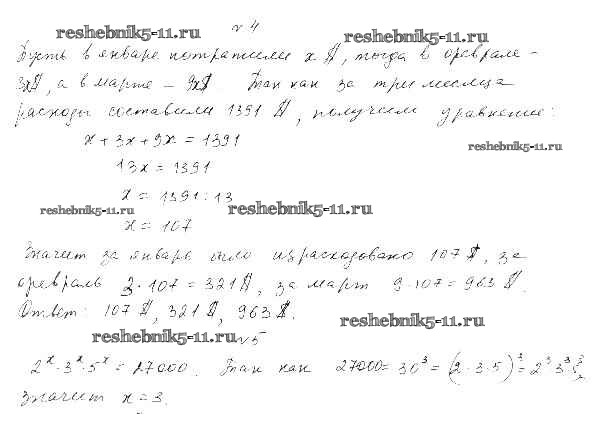 reshebnik5-11.ru
№4
reshebnik5-11.ru
Пусть в январе потратили x $, тогда в феврале -
3x$, а в марте - 9x$. Так как за три месяца
расходы составили 1391 $, получим уравнение:
x + 3x + 9x = 1391
reshebnik5-11.ru
13x = 1391
x = 1391 : 13
reshebnik5-11.ru
reshebnik5-11.ru
x = 107
Значит за январь было израсходовано 107 $, за
февраль 3 · 107 = 321 $, за март 9 · 107 = 963 $.
Ответ: 107 $, 321 $, 963 $.
reshebnik5-11.ru
reshebnik5-11.ru
№5
2^x · 3^x · 5^x = 27000. Так как 27000 = 30^3 = (2 · 3 · 5)^3 = 2^3 3^3 5^3,
Значит x = 3.